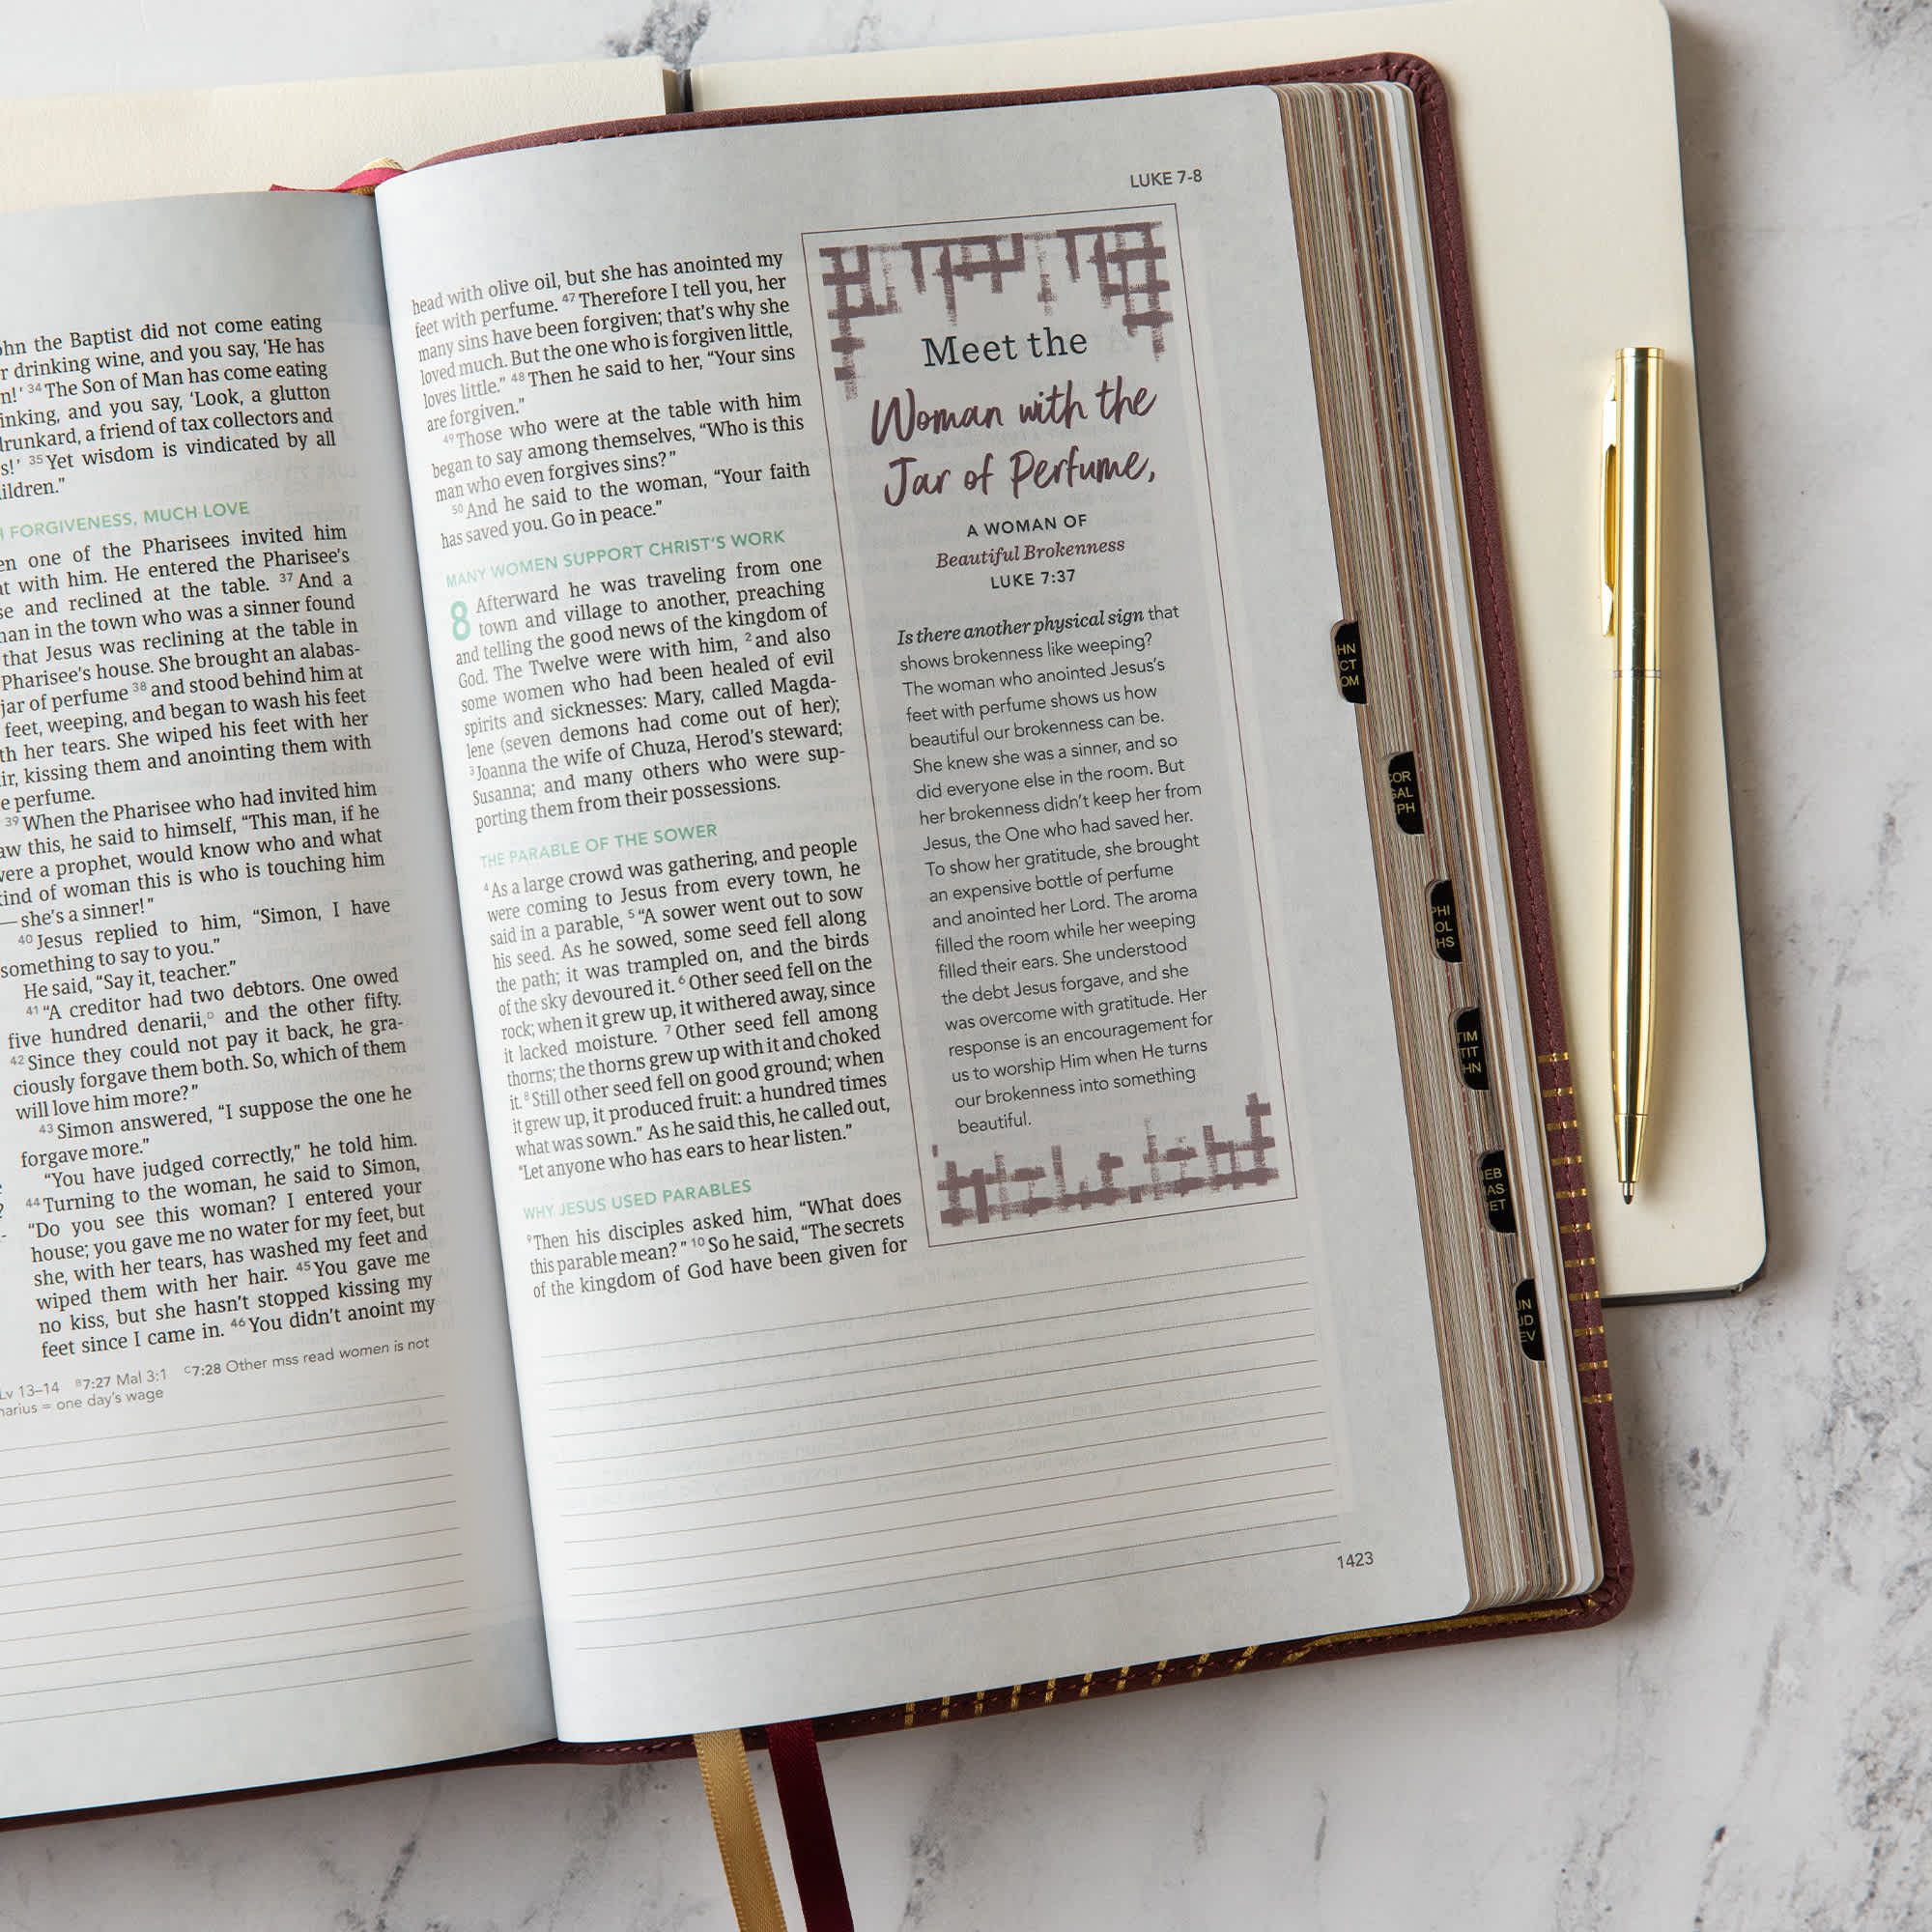 John the Baptist did not come eating
drinking wine, and you say, ‘He has
³⁴ The Son of Man has come eating
and you say, ‘Look, a glutton
a friend of tax collectors and
³⁵ Yet wisdom is vindicated by all
FORGIVENESS, MUCH LOVE
one of the Pharisees invited him
with him. He entered the Pharisee's
and reclined at the table. ³⁷ And a
in the town who was a sinner found
that Jesus was reclining at the table in
Pharisee's house. She brought an alabas-
jar of perfume ³⁸ and stood behind him at
feet, weeping, and began to wash his feet
her tears. She wiped his feet with her
kissing them and anointing them with
perfume.
³⁹ When the Pharisee who had invited him
this, he said to himself, “This man, if he
were a prophet, would know who and what
kind of woman this is who is touching him
— she's a sinner!”
⁴⁰ Jesus replied to him, “Simon, I have
something to say to you.”
He said, “Say it, teacher.”
⁴¹ “A creditor had two debtors. One owed
five hundred denarii,ᴰ and the other fifty.
⁴² Since they could not pay it back, he gra-
ciously forgave them both. So, which of them
will love him more?”
⁴³ Simon answered, “I suppose the one he
forgave more.”
“You have judged correctly,” he told him.
⁴⁴ Turning to the woman, he said to Simon,
“Do you see this woman? I entered your
house; you gave me no water for my feet, but
she, with her tears, has washed my feet and
wiped them with her hair. ⁴⁵ You gave me
no kiss, but she hasn't stopped kissing my
feet since I came in. ⁴⁶ You didn't anoint my
Lv 13–14 ᴮ7:27 Mal 3:1 ᶜ7:28 Other mss read women is not
= one day's wage
LUKE 7-8
head with olive oil, but she has anointed my
feet with perfume. ⁴⁷ Therefore I tell you, her
many sins have been forgiven; that's why she
loved much. But the one who is forgiven little,
loves little.” ⁴⁸ Then he said to her, “Your sins
are forgiven.”
⁴⁹ Those who were at the table with him
began to say among themselves, “Who is this
man who even forgives sins?”
⁵⁰ And he said to the woman, “Your faith
has saved you. Go in peace.”
MANY WOMEN SUPPORT CHRIST'S WORK
8 Afterward he was traveling from one
town and village to another, preaching
and telling the good news of the kingdom of
God. The Twelve were with him, ² and also
some women who had been healed of evil
spirits and sicknesses: Mary, called Magda-
lene (seven demons had come out of her);
³ Joanna the wife of Chuza, Herod's steward;
Susanna; and many others who were sup-
porting them from their possessions.
THE PARABLE OF THE SOWER
⁴ As a large crowd was gathering, and people
were coming to Jesus from every town, he
said in a parable, ⁵ “A sower went out to sow
his seed. As he sowed, some seed fell along
the path; it was trampled on, and the birds
of the sky devoured it. ⁶ Other seed fell on the
rock; when it grew up, it withered away, since
it lacked moisture. ⁷ Other seed fell among
thorns; the thorns grew up with it and choked
it. ⁸ Still other seed fell on good ground; when
it grew up, it produced fruit: a hundred times
what was sown.” As he said this, he called out,
“Let anyone who has ears to hear listen.”
WHY JESUS USED PARABLES
⁹ Then his disciples asked him, “What does
this parable mean?” ¹⁰ So he said, “The secrets
of the kingdom of God have been given for
Meet the
Woman with the
Jar of Perfume,
A WOMAN OF
Beautiful Brokenness
LUKE 7:37
Is there another physical sign that
shows brokenness like weeping?
The woman who anointed Jesus's
feet with perfume shows us how
beautiful our brokenness can be.
She knew she was a sinner, and so
did everyone else in the room. But
her brokenness didn't keep her from
Jesus, the One who had saved her.
To show her gratitude, she brought
an expensive bottle of perfume
and anointed her Lord. The aroma
filled the room while her weeping
filled their ears. She understood
the debt Jesus forgave, and she
was overcome with gratitude. Her
response is an encouragement for
us to worship Him when He turns
our brokenness into something
beautiful.
1423
HN
CT
OM
COR
GAL
PH
PHI
OL
HS
TIM
TIT
HN
EB
AS
ET
JN
JD
EV